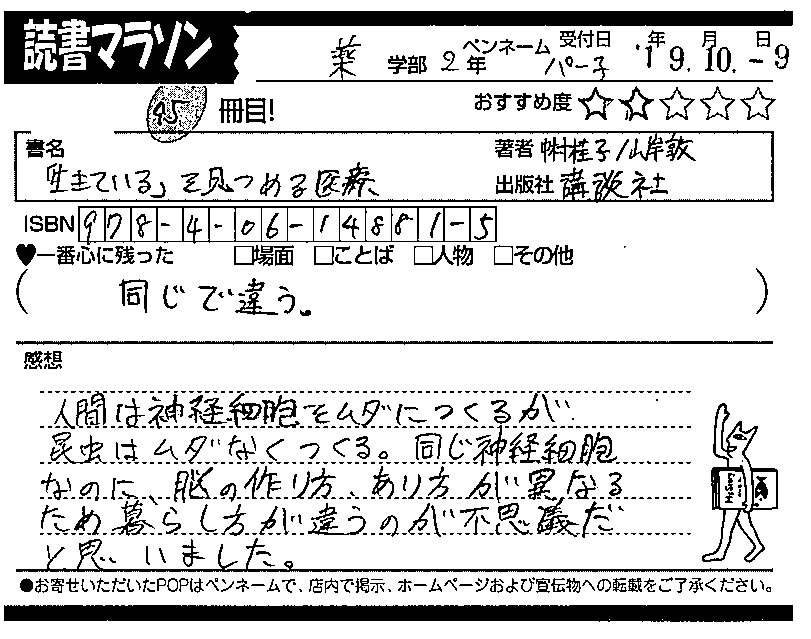 読書マラソン
薬 学部 2年 ペンネーム パー子 受付日 '19年.10月.-9日
45 冊目!
おすすめ度 ☆☆☆☆☆
書名 「生きている」を見つめる医療
著者 中村桂子/山岸敦
出版社 講談社
ISBN 978-4-06-14881-5
♥一番心に残った □場面 □ことば □人物 □その他
(同じで違う。)
感想
人間は神経細胞をムダにつくるが
昆虫はムダなくつくる。同じ神経細胞
なのに、脳の作り方、あり方が異なる
ため暮らし方が違うのが不思議だ
と思いました。
●お寄せいただいたPOPはペンネームで、店内で掲示、ホームページおよび宣伝物への転載をご了承ください。